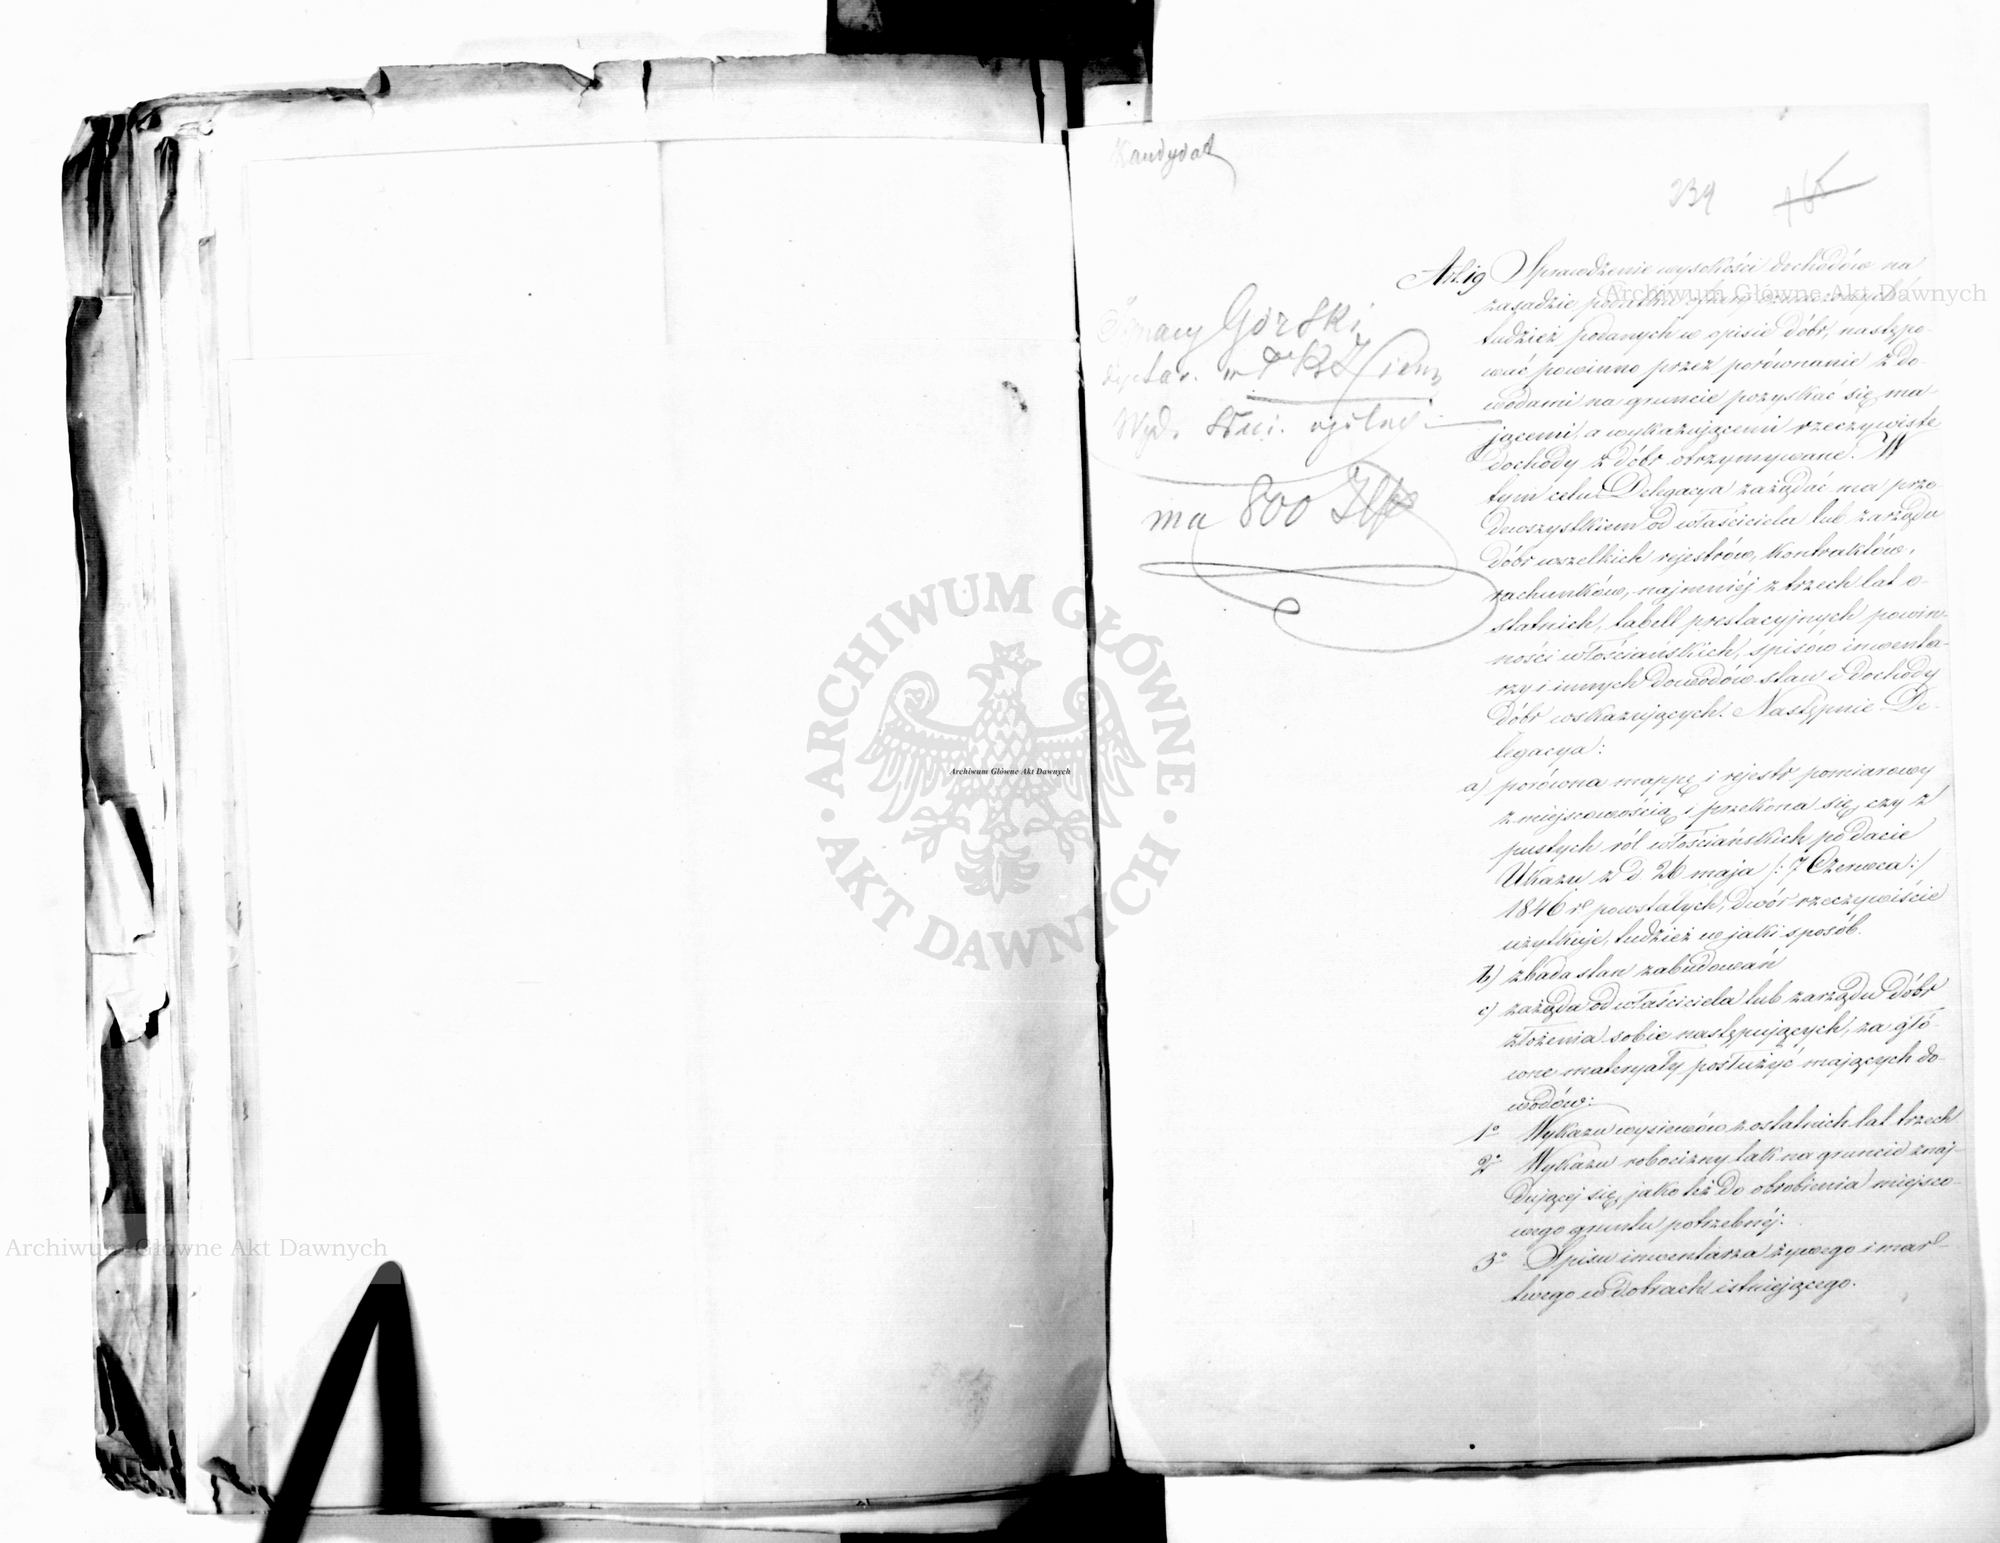 Kandydat
239
Ignacy Górski
ma 800 Złp
Art. 19 Sprawdzenie wysokości dochodów na
zasadzie
tudzież podanych w opisie dóbr, nastąpo-
wać powinno przez porównanie z do-
wodami na gruncie pozyskać się ma-
jącemi, a wykazującemi rzeczywiste
dochody z dóbr otrzymywane. W
tym celu Delegacya zażądać ma prze-
dewszystkiem od właściciela lub zarządu
dóbr wszelkich rejestrów, kontraktów,
rachunków, najmniéj z trzech lat o-
statnich, tabell prestacyjnych powin-
ności włościanskich, spisów inwenta-
rzy i innych dowodów stan i dochody
dóbr wskazujących. Następnie De-
legacya:
a) porówna mappę i rejestr pomiarowy
z miejscowością i przekona się, czy z
pustych ról włościańskich po dacie
Ukazu z d 26 maja /: 7 Czerwca :/
1846 r. powstałych, dwór rzeczywiście
użytkuje, tudzież w jaki sposób.
b) zbada stan zabudowań
c) zażąda od właściciela lub zarządu dóbr
złożenia sobie następujących, za głó-
wne materyały posłużyć mających do-
wodów:
1o Wykazu wysiewów z ostatnich lat trzech
2o Wykazu robocizny tak na gruncie znaj-
dującej się, jako też do obrobienia miejsco-
wego gruntu potrzebnéj.
3o Spisu inwentarza żywego i mar-
twego w dobrach istniejącego.
Archiwum Główne Akt Dawnych
ARCHIWUM GŁÓWNE
AKT DAWNYCH
Archiwum Główne Akt Dawnych
Archiwum Główne Akt Dawnych